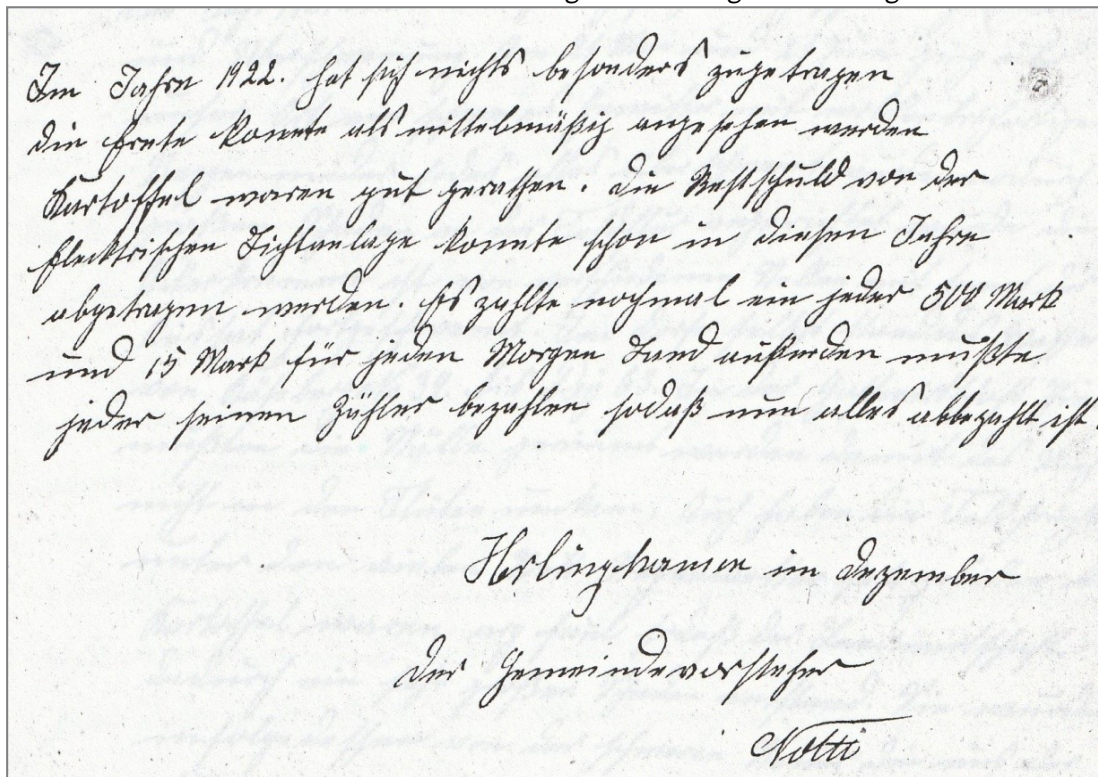 Im Jahre 1922. hat sich nichts besonders zugetragen
die Ernte konnte als mittelmäßig angesehen werden
Kartoffel waren gut gerathen. die Restschuld von der
Elecktrischen Lichtanlage konnte schon in diesen Jahre
abgetragen werden. Es zahlte nochmal ein jeder 500 Mark
und 15 Mark für jeden Morgen Land außerden mußte
jeder seinen Zähler bezahlen sodaß nun alles abbezahlt ist.
im Dezember
Der Gemeindevorsteher
Notti